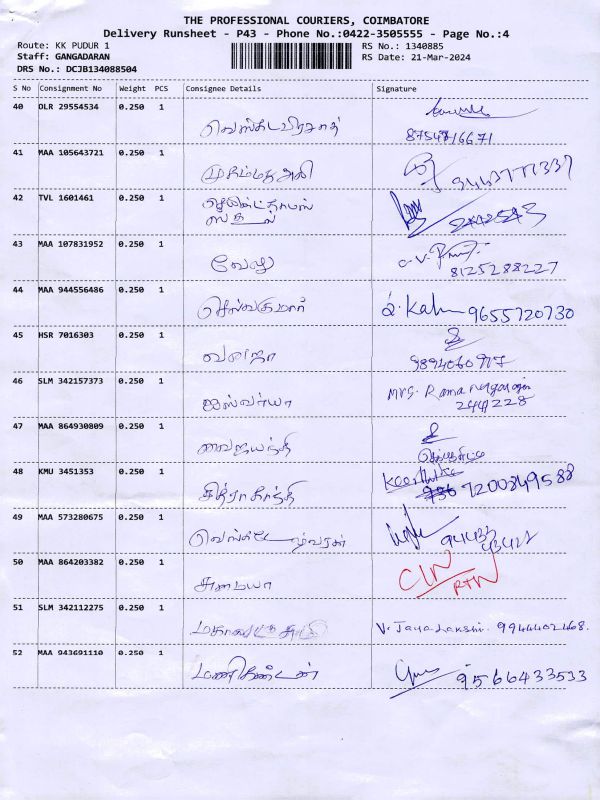 THE PROFESSIONAL COURIERS, COIMBATORE
Delivery Runsheet - P43 - Phone No.:0422-3505555 - Page No.:4
Route: KK PUDUR 1 RS No.: 1340885
Staff: GANGADARAN RS Date: 21-Mar-2024
DRS No.: DCJB134088504
S No Consignment No Weight PCS Consignee Details Signature
40 DLR 29554534 0.250 1
வெங்கடபிரசாத் 8754716671
41 MAA 105643721 0.250 1
முகம்மதுஅலி 9443771337
42 TVL 1601461 0.250 1
43 MAA 107831952 0.250 1
வேலு 8125288227
44 MAA 944556486 0.250 1
செல்வகுமார் 9655720730
45 HSR 7016303 0.250 1
வனஜா 9894060917
46 SLM 342157373 0.250 1 Mrs. Rama
ஐஸ்வர்யா 2441228
47 MAA 864930809 0.250 1
வைஜயந்தி
48 KMU 3451353 0.250 1
சித்ராகாந்தி 7200849588
49 MAA 573280675 0.250 1
வெங்கடேஷ்வரன்
50 MAA 864203382 0.250 1
சுமையா RTN
51 SLM 342112275 0.250 1
V. Jayalakshi. 9944402468.
52 MAA 943691110 0.250 1
மணிகண்டன் 9566433533